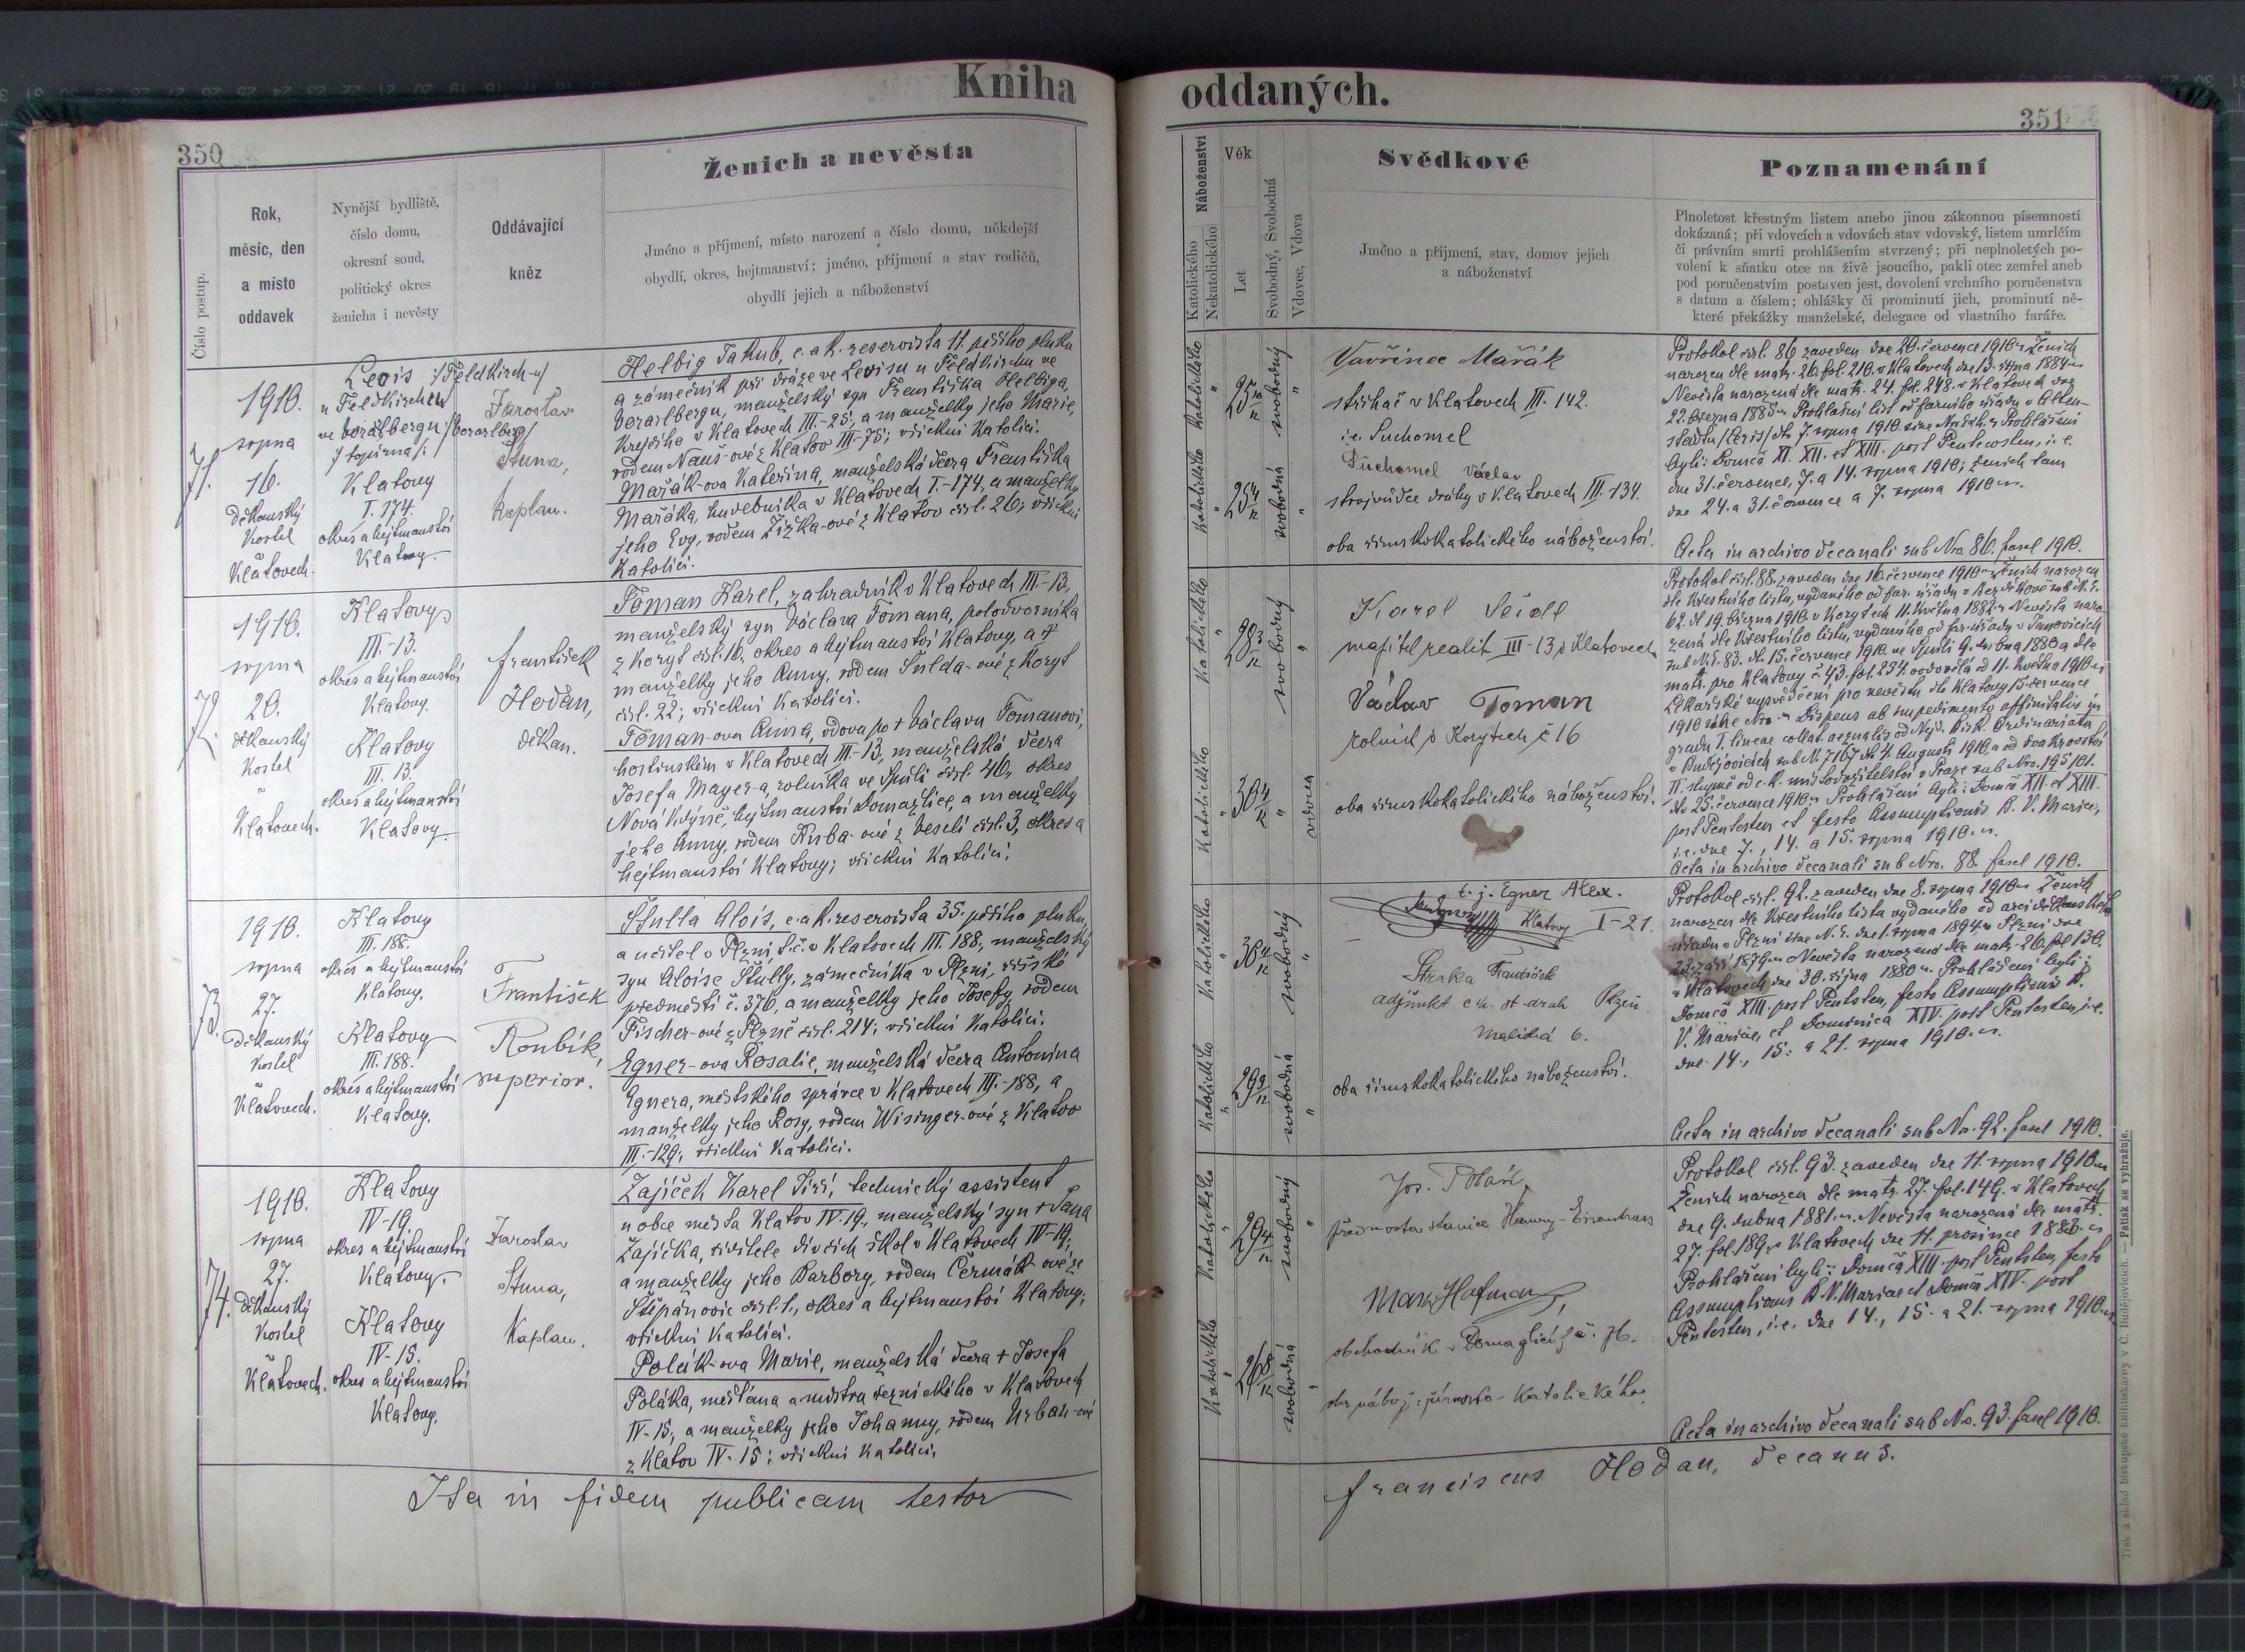 Kniha
350
Číslo postup.
Rok,
měsíc, den
a místo
oddavek
Nynější bydliště,
číslo domu,
okresní soud,
politický okres
ženicha i nevěsty
Oddávající
kněz
Ženich a nevěsta
Jméno a příjmení, místo narození a číslo domu, někdejší
obydlí, okres, hejtmanství; jméno, příjmení a stav rodičů,
obydlí jejich a náboženství
71.
1910.
srpna
16.
děkanský
kostel
v
Klatovech.
Levis /: Feldkirch
u Feldkirchu
ve Vorarlbergu /: Vorarlberg /
/ topírna /:
Klatovy
I. 174.
okres a hejtmanství
Klatovy.
Jaroslav
Stuna,
kaplan.
Helbig Jakub, c. a k. reservista 11. pěšího pluku
a zámečník při dráze ve Levisu u Feldkirchu ve
Vorarlbergu, manželský syn Františka Helbiga,
krejčího v Klatovech III.-25, a manželky jeho Marie,
rodem Nauš-ové z Klatov III-75; všickni katolíci.
Mařák-ova Kateřina, manželská dcera Františka
Mařáka, hudebníka v Klatovech I.-174, a manželky
jeho Evy, rodem Žižka-ové z Klatov čísl. 26; všickni
katolíci.
72.
1910.
srpna
20.
děkanský
kostel
v
Klatovech.
Klatovy
III-13.
okres a hejtmanství
Klatovy.
Klatovy
III. 13.
okres a hejtmanství
Klatovy.
František
Hoďan,
děkan.
Toman Karel, zahradník v Klatovech III.-13,
manželský syn Václava Tomana, polodvorníka
z Koryt čísl. 16, okres a hejtmanství Klatovy, a †
manželky jeho Anny, rodem Šulda-ové z Koryt
čísl. 22; všickni katolíci.
Toman-ova Anna, vdova po † Václavu Tomanovi,
hostinském v Klatovech III-13, manželská dcera
Josefa Mayer-a, rolníka ve Spůli čísl. 40, okres
Nová Kdyně, hejtmanství Domažlice, a manželky
jeho Anny, rodem Kuba-ové z Veselí čísl. 3, okres a
hejtmanství Klatovy; všickni katolíci.
73.
1910.
srpna
27.
děkanský
kostel
v
Klatovech.
Klatovy
III. 188.
okres a hejtmanství
Klatovy.
Klatovy
III. 188.
okres a hejtmanství
Klatovy.
František
Roubík,
superior.
Štulla Alois, c. a k. reservista 35. pěšího pluku,
a učitel v Plzni, t. č. v Klatovech III. 188, manželský
syn Aloise Štully, zámečníka v Plzni, říšské
předměstí č. 376, a manželky jeho Josefy, rodem
Fischer-ové z Plzně čísl. 214; všickni katolíci.
Egner-ova Rosalie, manželská dcera Antonína
Egnera, městského správce v Klatovech III.-188, a
manželky jeho Rosy, rodem Wisinger-ové z Klatov
III.-129; všickni katolíci.
74.
1910.
srpna
27.
děkanský
kostel
v
Klatovech.
Klatovy
IV-19.
okres a hejtmanství
Klatovy.
Klatovy
IV-15.
okres a hejtmanství
Klatovy.
Jaroslav
Stuna,
kaplan.
Zajíček Karel Jiří, technický assistent
u obce města Klatov IV.19., manželský syn † Jana
Zajíčka, řiditele dívčích škol v Klatovech IV-19;
a manželky jeho Barbory, rodem Čermák-ové ze
Štěpánovic čísl. 1., okres a hejtmanství Klatovy;
všickni katolíci.
Polák-ova Marie, manželská dcera † Josefa
Poláka, měšťana a mistra řeznického v Klatovech
IV-15, a manželky jeho Johanny, rodem Urban-ové
z Klatov IV-15; všickni katolíci.
Ita in fidem publicam testor
oddaných.
351
Náboženství
Katolického
Nekatolického
Věk
Let
Svobodný, Svobodná
Vdovec, Vdova
Svědkové
Jméno a příjmení, stav, domov jejich
a náboženství
Poznamenání
Plnoletost křestným listem anebo jinou zákonnou písemností
dokázaná; při vdovcích a vdovách stav vdovský, listem umrlčím
či právním smrti prohlášením stvrzený; při neplnoletých po-
volení k sňatku otce na živě jsoucího, pakli otec zemřel aneb
pod poručenstvím postaven jest, dovolení vrchního poručenstva
s datum a číslem; ohlášky či prominutí jich, prominutí ně-
které překážky manželské, delegace od vlastního faráře.
Katolického
25 10/12
svobodný
Katolického
25 4/12
svobodná
Vavřinec Mařák
střihač v Klatovech III. 142.
i.e. Suchomel
Suchomel Václav
strojvůdce dráhy v Klatovech III. 134.
oba římskokatolického náboženství.
Protokol čísl. 86 zaveden dne 20. července 1910. Ženich
narozen dle matr. 26. fol. 210. v Klatovech dne 15. října 1884
Nevěsta narozená dle matr. 24. fol. 248. v Klatovech dne
22. března 1885. Prohlašní list od farního úřadu v Alten-
stadtu /Levis/ dto 7. srpna 1910. sine Nro. Prohlášení
byli: Domca XI. XII. et XIII. post Pentecosten, i. e.
dne 31. července, 7. a 14. srpna 1910; ženich tam
dne 24. a 31. července a 7. srpna 1910.
Acta in archivo decanali sub Nro. 86. fascl 1910.
Katolického
28 3/12
svobodný
Katolického
30 4/12
vdova
Karel Seidl
majitel realit III-13 v Klatovech
Václav Toman
rolník v Korytech č 16
oba římskokatolického náboženství.
Protokol čísl. 88. zaveden dne 16. července 1910. Ženich narozen
dle křestního listu, vydaného od far. úřadu v Bezděkově sub N. E.
62. dt 19. března 1910. v Korytech 11. května 1882. Nevěsta naro-
zená dle křestního listu, vydaného od far. úřadu v Janovicích
sub N. E. 83. dt. 15. července 1910. ve Spůli 9. dubna 1880 a dle
matr. pro Klatovy č. 43. fol. 254. ovdověla od 11. května 1910.
Lékařské vysvědčení pro nevěstu dto Klatovy 15. července
1910 sine Nro. Dispens ab impedimento affinitatis in
gradu I. lineae collat. aequalis od Nejd. bisk. Ordinariátu
v Budějovicích sub N. 7167 dt 4. Augusti 1910, a od švakrovství
II. stupně od c. k. místodržitelství v Praze sub Nro. 195101.
dto 25. července 1910. Prohlášení byli: Domca XII. et XIII.
post Pentesten et festo Assumptionis B. V. Mariae,
i. e. dne 7., 14. a 15. srpna 1910.
Acta in archivo decanali sub Nro. 88. fascl 1910.
Katolického
30 11/12
svobodný
Katolického
29 9/12
svobodná
t. j. Egner Alex.
Klatovy I-21.
Straka František
adjunkt c. k. st. drah Plzeň
Malická 6.
oba římskokatolického náboženství.
Protokol čísl. 92. zaveden dne 8. srpna 1910. Ženich
narozen dle křestního listu vydaného od arciděkanského
úřadu v Plzni sine N. E. dne 1. srpna 1894, v Plzni dne
22. září 1879. Nevěsta narozená dle matr. 26. fol 130.
v Klatovech dne 30. října 1880. Prohlášení byli:
Domca XIII. post Pentsten, festo Assumptionis B.
V. Mariae, et Dominica XIV. post Pentesten, i. e.
dne 14., 15. a 21. srpna 1910.
Acta in archivo decanali sub Nro. 92. fascl 1910.
Katolického
29 4/12
svobodný
Katolického
26 8/12
svobodná
Jos. Polák,
přednosta stanice
Max Hofman,
obchodník v Domažlicích č. 76.
oba nábož. římsko-katolického.
Protokol čísl. 93. zaveden dne 11. srpna 1910.
Ženich narozen dle matr. 27. fol. 149. v Klatovech
dne 9. dubna 1881. Nevěsta narozená dle matr.
27. fol. 189. v Klatovech dne 11. prosince 1883.
Prohlášení byli: Domca XIII. post Pentsten, festo
Assumptionis B. V. Mariae et Domca XIV. post
Pentesten, i. e. dne 14., 15. a 21. srpna 1910.
Acta in archivo decanali sub No. 93. fascl 1910.
Franciscus Hoďan, decanus.
Tisk a sklad biskupské knihtiskárny v Č. Budějovicích. — Patisk se vyhražuje.